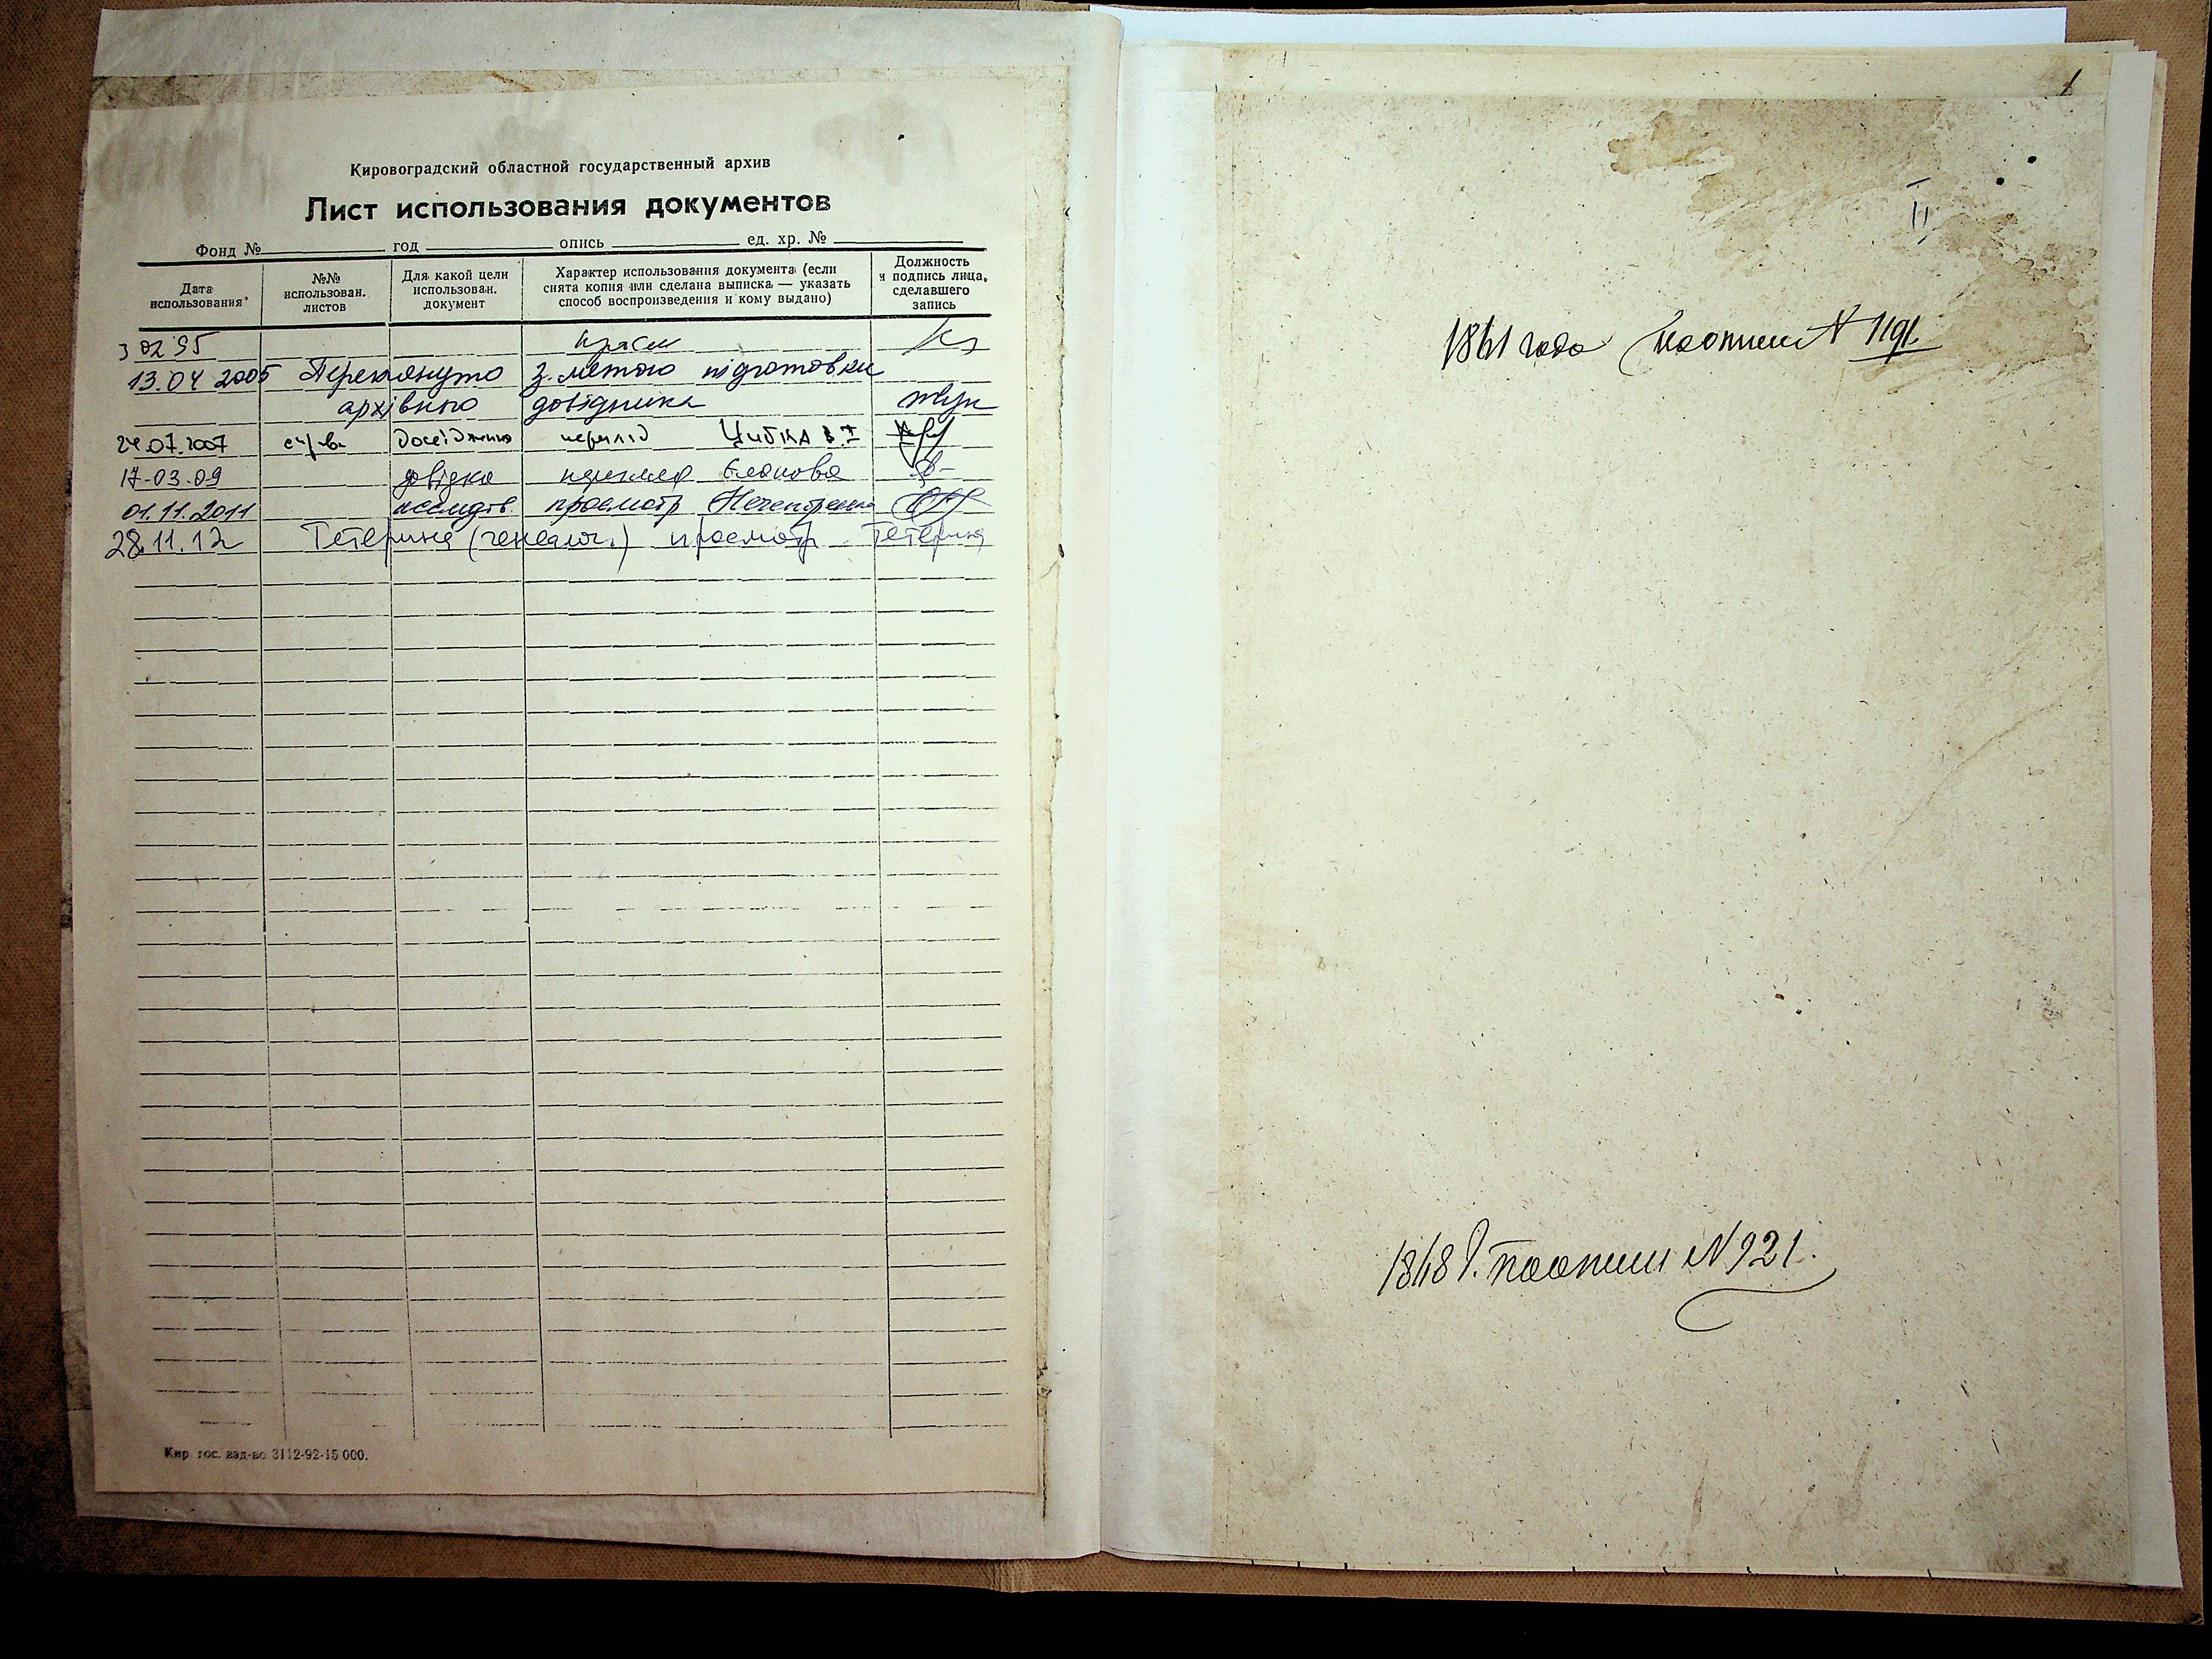 Кировоградский областной государственный архив
Лист использования документов
Фонд № год опись ед. хр. №
Дата использования
№№ использован. листов
Для какой цели использован. документ
Характер использования документа (если снята копия или сделана выписка — указать способ воспроизведения и кому выдано)
Должность и подпись лица, сделавшего запись
3 02 95
13.04 2005 Переглянуто з метою підготовки
архівного довідника
24.07.2007 Цибка
17-03-09 довідка перегляд
01.11.2011 исследов. просмотр
28.11.12 Тетерина (генеалог.) просмотр Тетерина
Кир. гос. изд-во 3112-92-15 000.
1
II
1841 года по описи № 1191.
1848 г. по описи № 921.